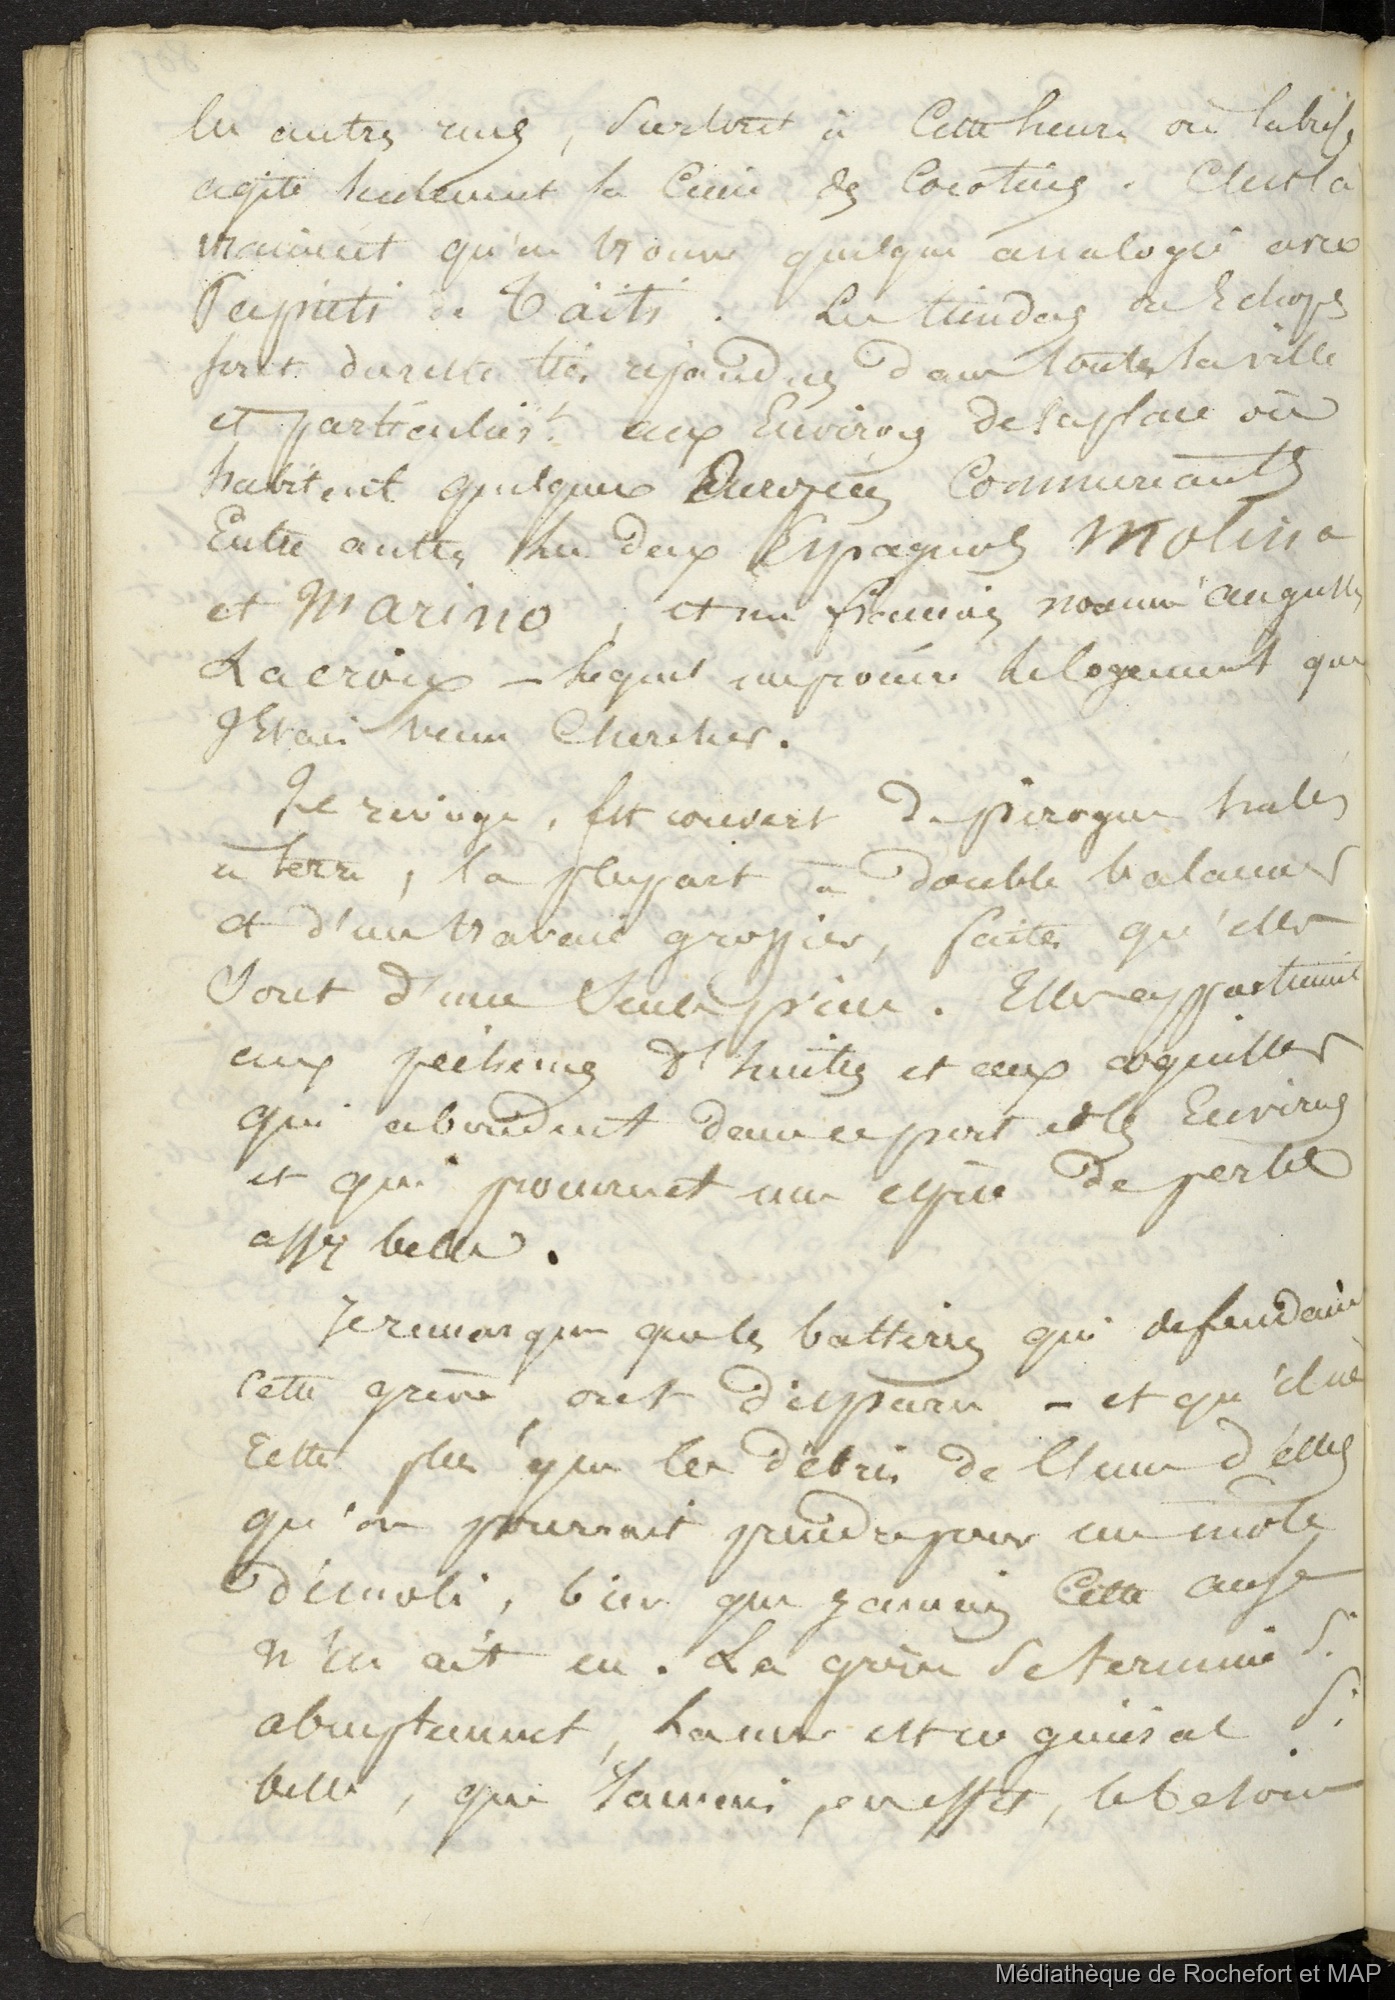 les autres rues, surtout à Cette heure où la brise
agite seulement la Cime des Cocotiers. C'est là
vraiment qu'on trouve quelque analogie avec
Papieti de Taïti. Les tiendas ou Echopes
sont du reste très répandues dans toute la ville
et particulièrt. aux Environs de la place où
habitent quelques Européens Commerçants
Entre autres les deux Espagnols Molina
et Marino, et un français nommé auguste
Lacroix – lequel me procure le logement que
J'Etais venu Chercher.
Le rivage, est couvert de pirogues halés
à terre, la plupart à double balancier
et d'un travail grossier, faites qu'elles
Sont d'une Seule pièce. Elles appartiennent
aux pêcheurs d'huitres et aux coquilles
qui abondent dans ce port et les Environs
et qui fournissent une espèce de perle
assez belle.
Je remarque que les batteries qui defendaient
cette grève, ont disparu – et qu'il ne
reste plus que les débris de l'une d'elles
qu'on pourrait prendre pour un môle
démoli, bien que jamais Cette anse
n'en ait eu. La grève se termine Si
abruptement, la mer est en général Si
belle, que jamais, en effet, le besoin
Médiathèque de Rochefort et MAP